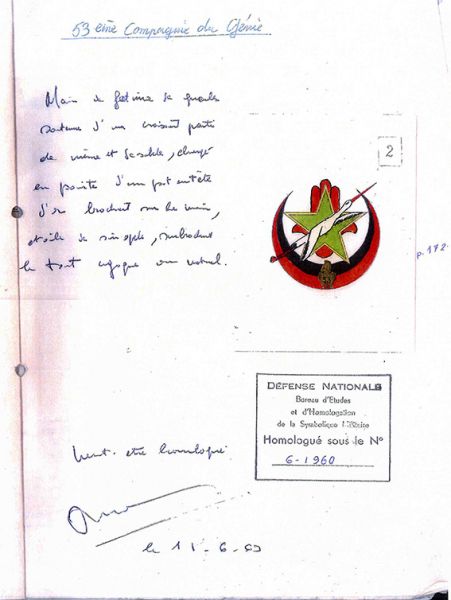 53 ème Compagnie du Génie
Main de fatma de gueules
soutenue d'un croissant parti
de même et de sable, chargé
en pointe d'un pot en tête
d'or brochant sur la main,
étoile de sinople, surbrochant
le tout cigogne au naturel.
2
p. 172
DÉFENSE NATIONALE
Bureau d'Etudes
et d'Homologation
de la Symbolique Militaire
Homologué sous le N°
6-1960
être homologué
le 11-6-